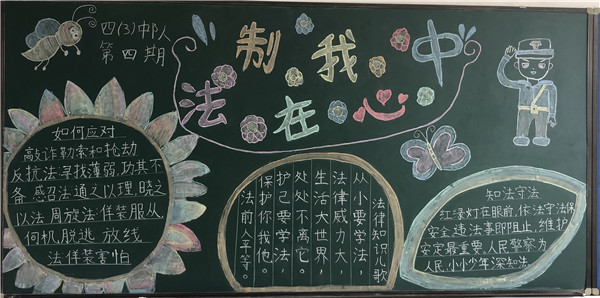 四(3)中队
第四期
法制在我心中
如何应对
敲诈勒索和抢劫
反抗法寻找薄弱,功其不
备 感召法通之以理,晓之
以法 周旋法佯装服从,
伺机脱逃 放线
法佯装害怕
法律知识儿歌
从小要学法,
法律威力大,
生活大世界,
处处不离它。
护己要学法,
保护你我他。
法前人平等。
知法守法
红绿灯在眼前,依法守法保
安全 违法事即阻止,维护
安定最重要。人民警察为
人民,小小少年深知法。